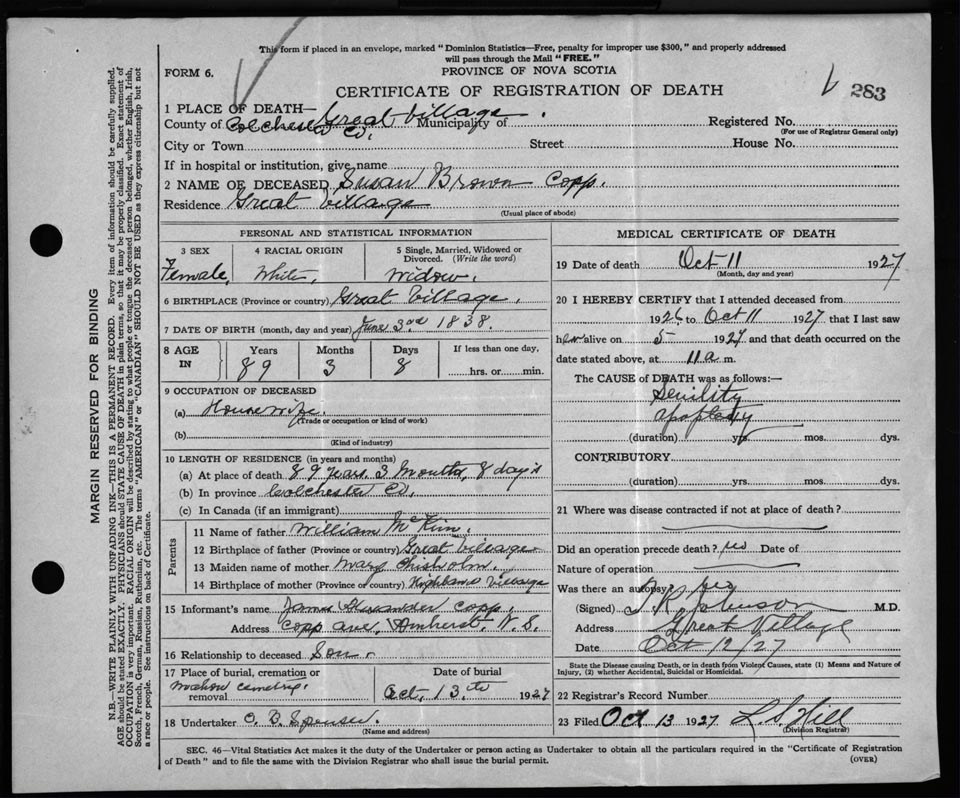 This form if placed in an envelope, marked "Dominion Statistics—Free, penalty for improper use $300," and properly addressed
will pass through the Mail "FREE."
FORM 6.
PROVINCE OF NOVA SCOTIA
CERTIFICATE OF REGISTRATION OF DEATH
283
1 PLACE OF DEATH— Great Village.
County of Colchester Co. Municipality of Registered No.
(For use of Registrar General only)
City or Town Street House No.
If in hospital or institution, give name
2 NAME OF DECEASED Susan Brown Copp.
Residence Great Village
(Usual place of abode)
PERSONAL AND STATISTICAL INFORMATION
3 SEX 4 RACIAL ORIGIN 5 Single, Married, Widowed or
Divorced. (Write the word)
Female, White, Widow.
6 BIRTHPLACE (Province or country) Great Village.
7 DATE OF BIRTH (month, day and year) June 3rd 1838.
8 AGE IN Years Months Days If less than one day,
89 3 8 hrs. or min.
9 OCCUPATION OF DECEASED
(a) Housewife.
(Trade or occupation or kind of work)
(b)
(Kind of industry)
10 LENGTH OF RESIDENCE (in years and months)
(a) At place of death 89 years. 3 Months, 8 day's
(b) In province Colchester Co.
(c) In Canada (if an immigrant)
Parents
11 Name of father William McKim.
12 Birthplace of father (Province or country) Great Village
13 Maiden name of mother Mary Chisholm.
14 Birthplace of mother (Province or country) Highland Village
15 Informant's name James Alexander Copp.
Address Copp ave, Amherst, N.S.
16 Relationship to deceased Son.
17 Place of burial, cremation or removal Date of burial
Mahon cemetery. Oct. 13.th 1927
18 Undertaker C. B. Spenser.
(Name and address)
MEDICAL CERTIFICATE OF DEATH
19 Date of death Oct 11 1927
(Month, day and year)
20 I HEREBY CERTIFY that I attended deceased from
1926 to Oct 11 1927 that I last saw
her alive on 5 1927 and that death occurred on the
date stated above, at 11 a m.
The CAUSE of DEATH was as follows:—
Senility
apoplexy
(duration) yrs. mos. dys.
CONTRIBUTORY
(duration) yrs. mos. dys.
21 Where was disease contracted if not at place of death?
Did an operation precede death? Date of
Nature of operation
Was there an autopsy?
(Signed) Johnson M.D.
Address Great Village
Date Oct 12/27
State the Disease causing Death, or in death from Violent Causes, state (1) Means and Nature of
Injury, (2) whether Accidental, Suicidal or Homicidal.
22 Registrar's Record Number
23 Filed Oct 13 1927 L. S. Hill
(Division Registrar)
SEC. 46—Vital Statistics Act makes it the duty of the Undertaker or person acting as Undertaker to obtain all the particulars required in the "Certificate of Registration
of Death" and to file the same with the Division Registrar who shall issue the burial permit.
(OVER)
MARGIN RESERVED FOR BINDING
N.B.—WRITE PLAINLY WITH UNFADING INK—THIS IS A PERMANENT RECORD. Every item of information should be carefully supplied.
AGE should be stated EXACTLY. PHYSICIANS should STATE CAUSE OF DEATH in plain terms, so that it may be properly classified. Exact statement of
OCCUPATION is very important. RACIAL ORIGIN will be described by stating to what people or tongue the deceased person belonged, whether English, Irish,
Scotch, French, German, Russian, Ruthenian, etc. The terms "AMERICAN" or "CANADIAN" SHOULD NOT BE USED as they express citizenship but not
a race or people. See instructions on back of Certificate.